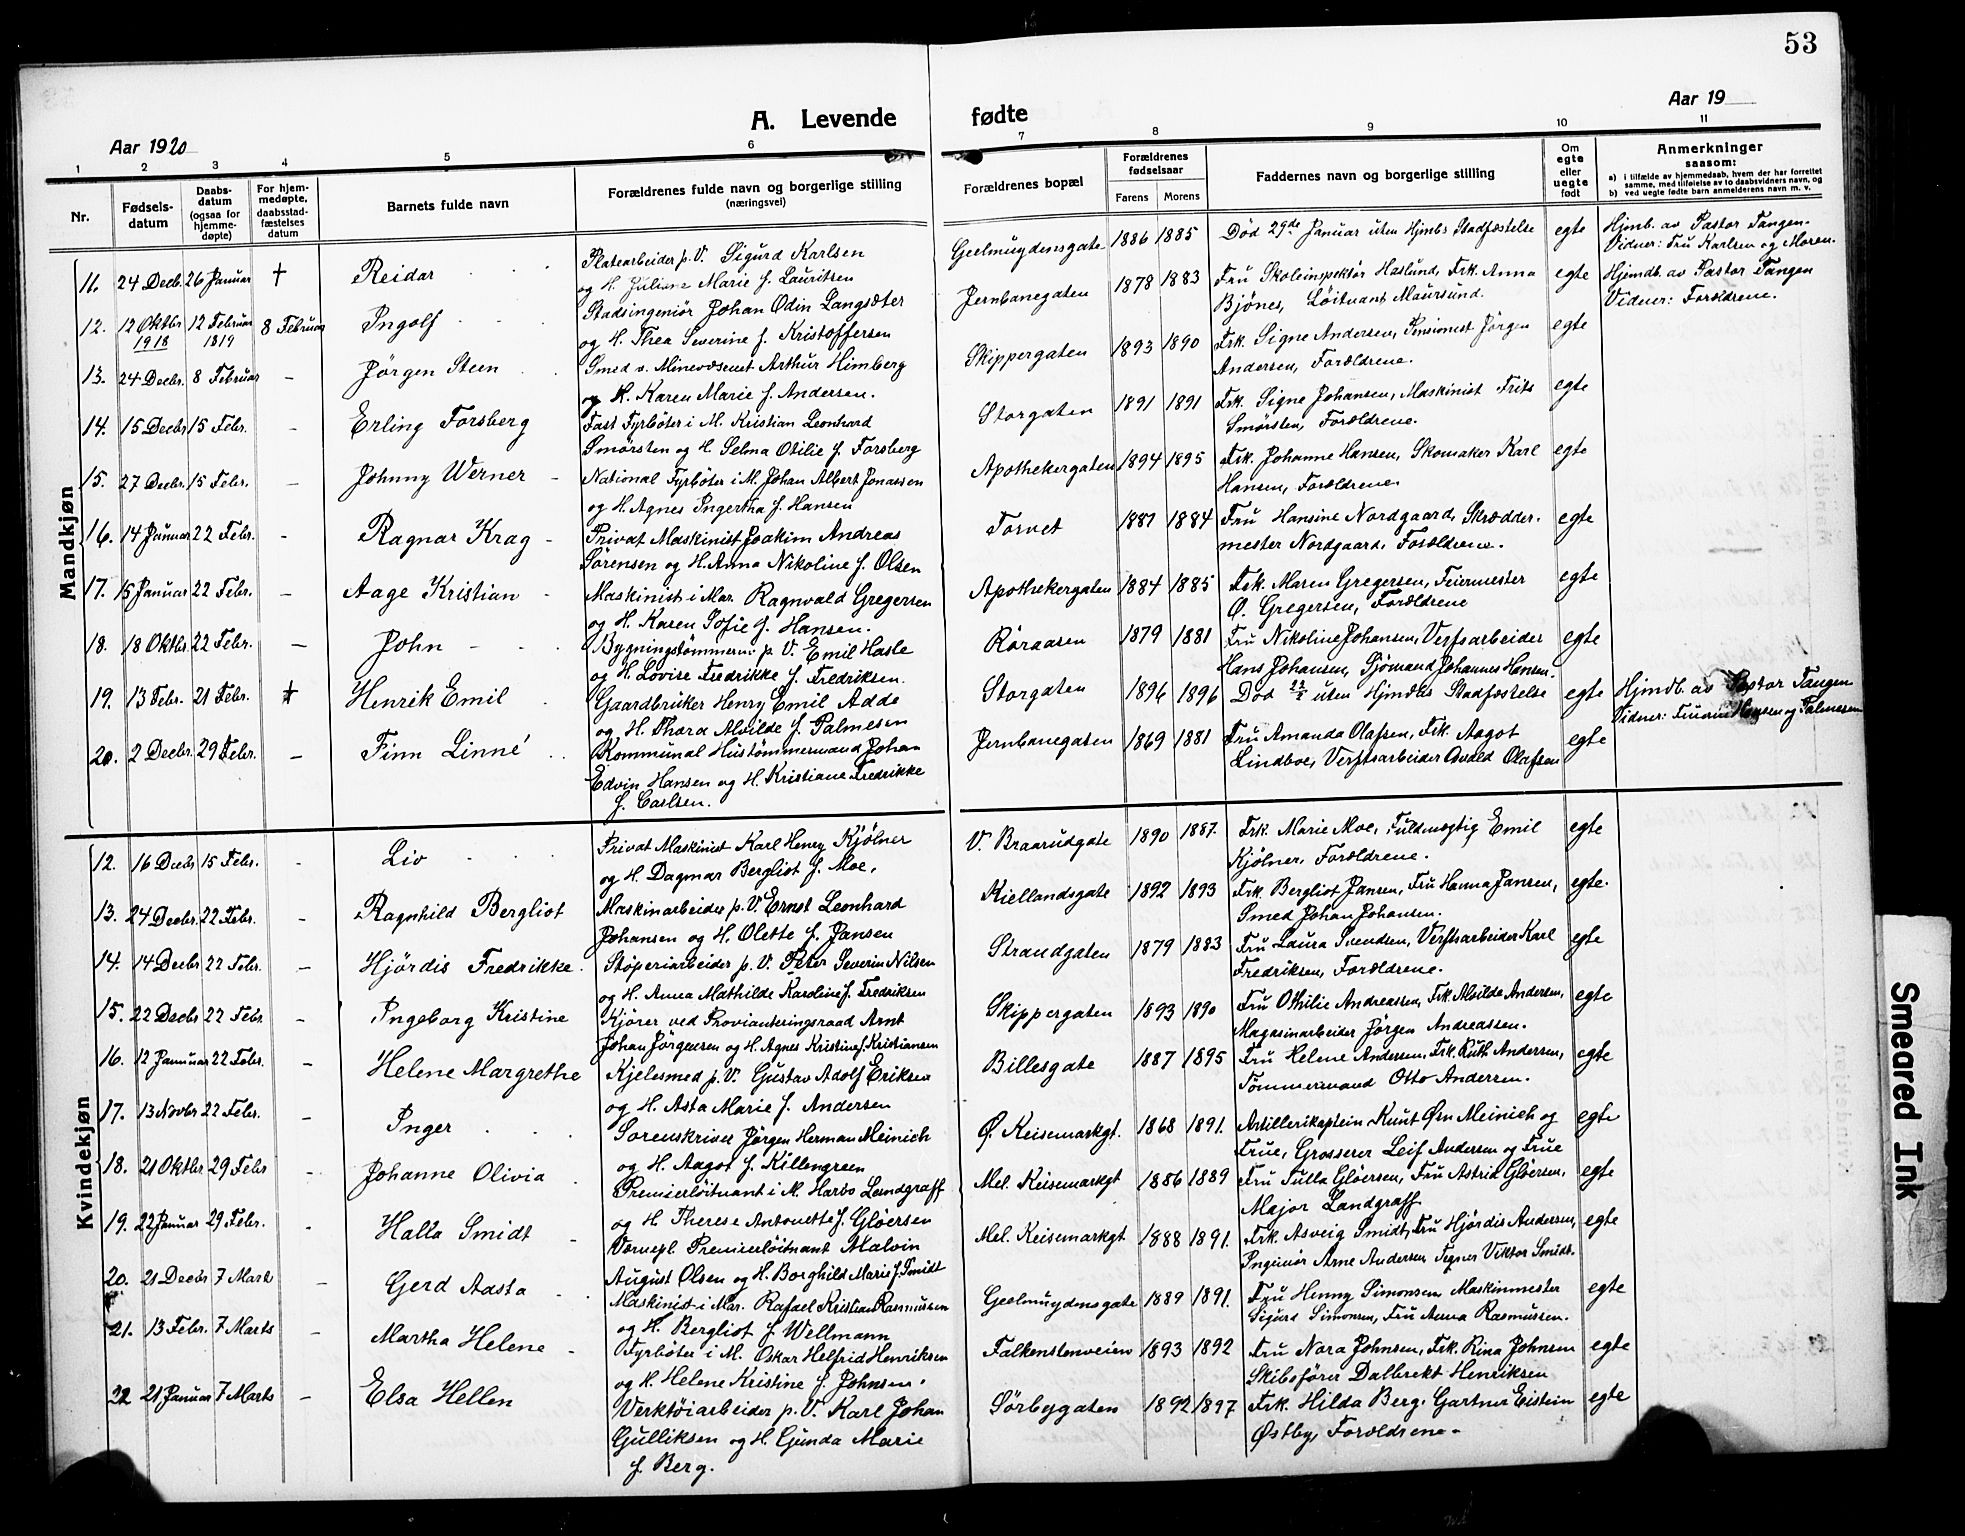 53
A. Levende fødte
Aar 1920
Aar 19
1 2 3 4 5 6 7 8 9 10 11
Nr.
Fødsels-datum
Daabs-datum (ogsaa for hjemme-døpte)
For hjem-medøpte, daabsstad-fæstelses datum
Barnets fulde navn
Forældrenes fulde navn og borgerlige stilling (næringsvei)
Forældrenes bopæl
Forældrenes fødselsaar
Farens Morens
Faddernes navn og borgerlige stilling
Om egte eller uegte født
Anmerkninger saasom:
a) i tilfælde av hjemmedaab, hvem der har forrettet samme, med tilføielse av to daabsvidners navn, og
b) ved uegte fødte barn anmelderens navn m. v.
Mandkjøn
11. 24 Decb. 26 Januar † Reidar
Platearbeider p. V. Sigurd Karlsen
og H. Juliane Marie f. Lauritsen
Geelmuydensgate 1886 1885
Død 29de Januar uten Hjmbs Stadfæstelse
egte
Hjmb. av Pastor Tangen.
Vidner: Fru Karlsen og Moren.
12. 12 Oktbr 1918 12 Februar 1819 8 Februar Ingolf
Stadsingeniør Johan Odin Langsæter
og H. Thea Severine f. Kristoffersen
Jernbanegaten 1878 1883
Fru Skoleinspektør Haslund, Frk. Anna
Bjönes, Löitnant Maursund.
egte
Hjemdb. av Pastor Tangen
Vidner: Forældrene.
13. 24 Decbr. 8 Februar - Jørgen Steen
Smed v. Minevæsenet Arthur Himberg
og H. Karen Marie f. Andersen.
Skippergaten 1893 1890
Frk. Signe Andersen, Pensionist Jörgen
Andersen, Forældrene.
egte
14. 15 Decbr 15 Febr. - Erling Forsberg
Fast Fyrböter i M. Kristian Leonhard
Smörsten og H. Selma Otilie f. Forsberg
Storgaten 1891 1891
Frk. Signe Johansen, Maskinist Frits
Smörsten, Forældrene.
egte
15. 27 Decbr. 15 Febr. - Johnny Werner
National Fyrböter i M. Johan Albert Jonassen
og H. Agnes Ingertha f. Hansen
Apothekergaten 1894 1895
Frk. Johanne Hansen, Skomaker Karl
Hansen, Forældrene
egte
16. 14 Januar 22 Febr. - Ragnar Krag
Privat Maskinist Joakim Andreas
Sörensen og H. Anna Nikoline f. Olsen
Torvet 1881 1884
Fru Hansine Nordgaard, Skrædder-
mester Nordgaard, Forældrene.
egte
17. 15 Januar 22 Febr. - Aage Kristian
Maskinist i Mar. Ragnvald Gregersen
og H. Karen Sofie f. Hansen.
Apothekergaten 1884 1885
Frk. Maren Gregersen, Feiermester
O. Gregersen, Forældrene
egte
18. 18 Oktbr. 22 Febr. - John
Bygningstömmerm. p. V. Emil Hasle
og H. Lovise Fredrikke f. Fredriksen.
Röraasen 1879 1881
Fru Nikoline Johansen, Verftsarbeider
Hans Johansen, Sjömand Johannes Hansen.
egte
19. 13 Febr. 21 Febr. † Henrik Emil
Gaardbruker Henry Emil Adde
og H. Thora Alvilde f. Palmesen
Storgaten 1896 1896
Död 22/2 uten Hjmdbs Stadfæstelse
egte
Hjmdb. av Pastor Tangen
20. 2 Decbr. 29 Febr. - Finn Linné
Kommunal Hustömmermand Johan
Edvin Hansen og H. Kristiane Fredrikke
f. Carlsen.
Jernbanegaten 1869 1881
Fru Amanda Olafsen, Frk. Aagot
Lindboe, Verftsarbeider Osvald Olafsen
egte
Kvindekjøn
12. 16 Decbr 15 Febr. - Liv
Privat Maskinist Karl Henry Kjölner
og H. Dagmar Bergliot f. Moe.
V. Braarudgate 1890 1887.
Frk. Marie Moe, Fuldmægtig Emil
Kjölner, Forældrene.
egte
13. 24 Decbr. 22 Febr. - Ragnhild Bergliot
Maskinarbeider p. V. Ernst Leonhard
Johansen og H. Olette f. Jansen
Kiellandsgate 1892 1893
Frk. Bergliot Jansen, Fru Hanna Jansen,
Smed Johan Johansen.
egte.
14. 14 Decbr 22 Febr. - Hjördis Fredrikke.
Stöperiarbeider p. V. Peter Severin Nilsen
og H. Anna Mathilde Karoline f. Fredriksen
Strandgaten 1879 1883
Fru Laura Svendsen, Verftsarbeider Karl
Fredriksen, Forældrene.
egte
15. 22 Decbr 22 Febr. - Ingeborg Kristine
Kjörer ved Provianteringsraad Arnt
Johan Jörgensen og H. Agnes Kristine f. Kristiansen
Skippergaten 1893 1890
Fru Othilie Andreassen, Frk. Alvilde Andersen,
Magasinarbeider Jörgen Andreassen.
egte
16. 12 Januar 22 Febr. - Helene Margrethe
Kjelesmed p. V. Gustav Adolf Eriksen
og H. Asta Marie f. Andersen
Billesgate 1887 1895
Fru Helene Andersen, Frk. Ruth Andersen,
Tömmermand Otto Andersen.
egte
17. 13 Novbr 22 Febr. - Inger
Sorenskriver Jörgen Herman Meinich
og H. Aagot f. Killengreen
Ø. Keisemarkgt. 1868 1891.
Artillerikaptein Knut Ørn Meinich og
Frue, Grosserer Leif Andersen og Frue
egte
18. 21 Oktbr 29 Febr - Johanne Olivia
Premierlöitnant i M. Harbo Landgraff
og H. Therese Antonette f. Glöersen
Mel. Keisemarkgt 1886 1889
Fru Tulla Glöersen, Fru Astrid Glöersen,
Major Landgraff
egte
19. 22 Januar 29 Febr. - Halla Smidt
Vernepl. Premierlöitnant Malvin
August Olsen og H. Borghild Marie f. Smidt
Mel. Keisemarkgt 1888 1891.
Frk. Asveig Smidt, Fru Hjördis Andersen,
Ingeniør Arne Andersen, Tegner Viktor Smidt.
egte
20. 21 Decbr 7 Marts - Gerd Aasta
Maskinist i Mar. Rafael Kristian Rasmussen
og H. Bergliot f. Wellmann
Geelmuydensgate 1889 1891.
Fru Henny Simonsen, Maskinmester
Sigurd Simonsen, Fru Anna Rasmussen.
egte
21. 13 Febr. 7 Marts - Martha Helene
Fyrböter i M. Oskar Helfrid Henriksen
og H. Helene Kristine f. Johnsen.
Falkenstenveien 1893 1892
Fru Nora Johnsen, Frk. Rina Johnsen
Skibsförer Dalbrekt Henriksen
egte
22 21 Januar 7 Marts - Elsa Hellen
Verktöiarbeider p. V. Karl Johan
Gulliksen og H. Gunda Marie
f. Berg.
Sörbygaten 1892 1897
Frk. Hilda Berg, Gartner Eistein
Østby, Forældrene.
egte
Smeared Ink